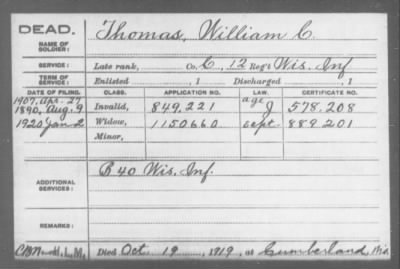 DEAD.
NAME OF SOLDIER: Thomas, William C.
SERVICE: Late rank, Co. C, 12 Reg't Wis. Inf
TERM OF SERVICE: Enlisted , 1 Discharged , 1
DATE OF FILING. CLASS. APPLICATION NO. LAW. CERTIFICATE NO.
1907, Apr. 27 age
1890, Aug. 9 Invalid, 849.221 J 578.208
1920 Jan 2 Widow, 1150660 Sept. 889201
Minor,
ADDITIONAL SERVICES: B 40 Wis. Inf.
REMARKS:
L.M. Died Oct 19, 1919, at Cumberland, Wis.